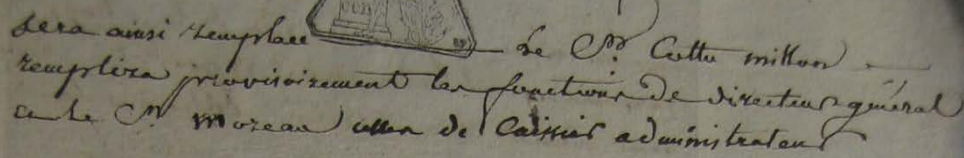 sera ainsi remplacé le Sr. Cottu millon
remplira provisoirement les fonctions de directeur général
et le Sr. Moreau celles de Caissier administrateur